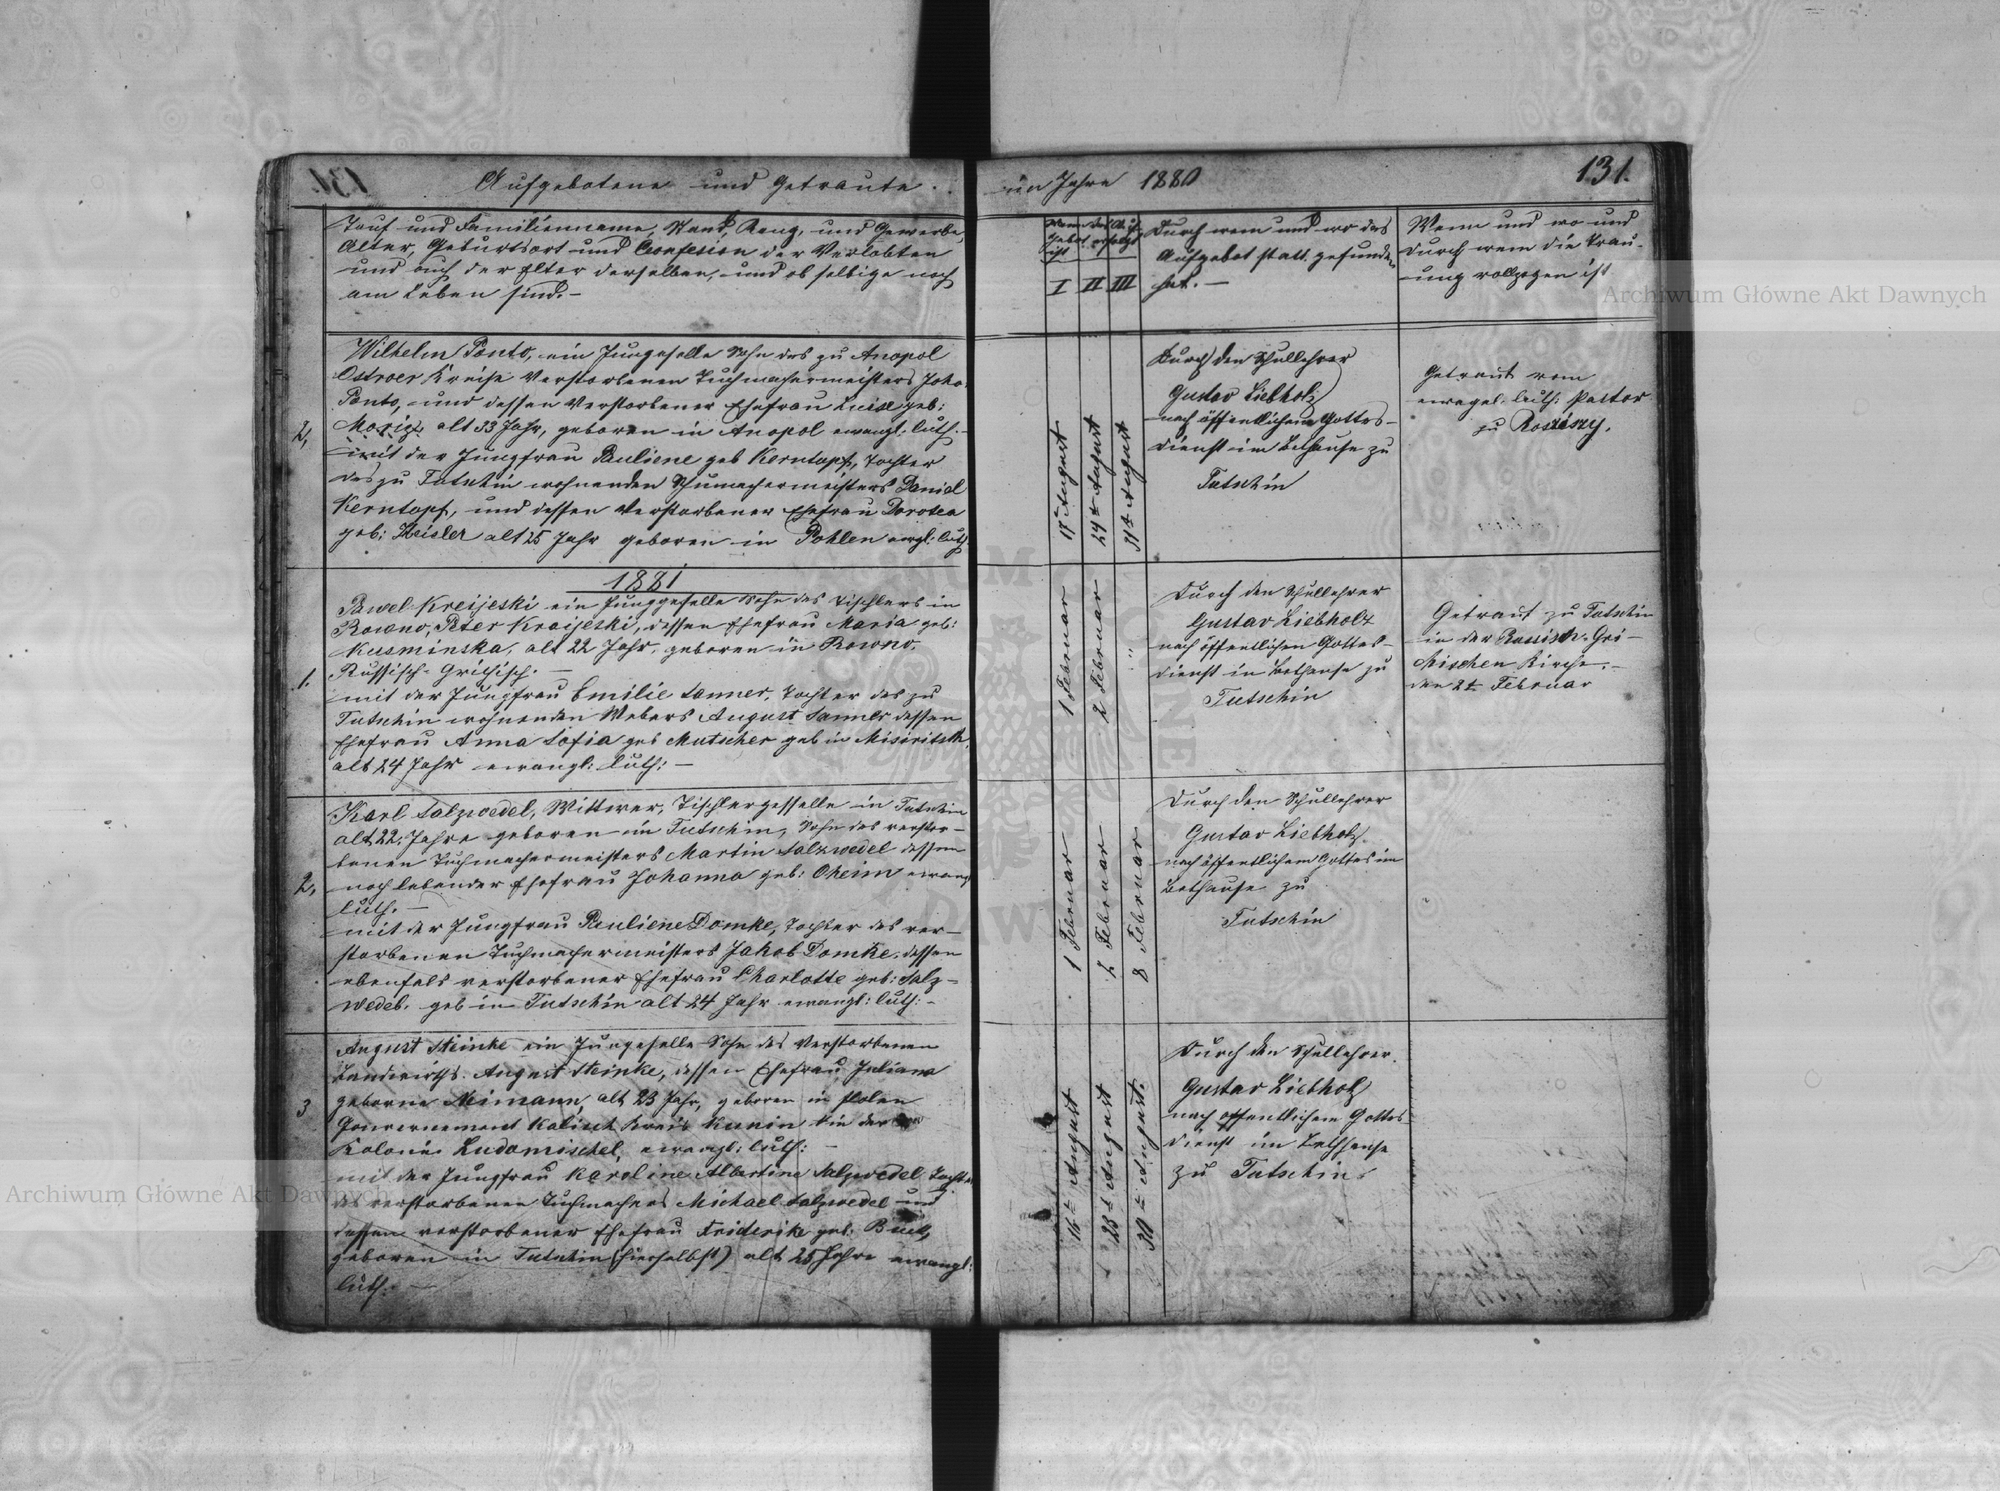 131.
Aufgebotene und Getraute.
im Jahre 1880
131.
Tauf und Familienname, Stand, Rang, und Gewerbe,
Alter, Geburtsort und Confesion der Verlobten
und auch der Elter derselben, und ob selbige noch
am Leben sind. –
Wann das Aufgebot erfolgt ist
I II III
Durch wem und wo das
Aufgebot statt gefunden
hat. –
Wann und wo und
durch wem die Trau-
ung vollzogen ist
2,
Wilhelm Ponto, ein Jungeselle Sohn des zu Anopol
Ostroer Kreise Verstorbenen Tuchmachermeisters Joha.
Ponto, und dessen Verstorbener Ehefrau Luise geb:
Moriz, alt 33 Jahr, geboren in Anopol ewangl: luth. –
mit der Jungfrau Pauliene geb Kerntopf, Tochter
des zu Tutschin wohnenden Schumachermeisters Daniel
Kerntopf, und dessen Verstorbener Ehefrau Dorotea
geb: Zeisler alt 25 Jahr geboren in Pohlen ewgl: luth.
17t August
24t August
31t August
Durch den Schullehrer
Gustav Liebholz
nach öffentlichem Gottes-
dienst im Bethause zu
Tutschin
Getraut vom
ewagel. luth: Pastor
zu Rosziszy.
1881
1.
Pawel Kreijeski ein Junggeselle Sohn des Tischlers in
Rowno, Peter Kraijeski, dessen Ehefrau Maria geb:
Kusminska, alt 22 Jahr, geboren in Rowno.
Russisch-Grichisch. –
mit der Jungfrau Emilie Sanner, Tochter des zu
Tutschin wohnenden Webers August Sanner dessen
Ehefrau Anna Sofia geb Mutscher geb in Misiritsch,
alt 24 Jahr ewangl: luth: –
1 Februar
2 Februar
"
Durch den Schullehrer
Gustav Liebholz
nach öffentlichen Gottes-
dienst in Bethause zu
Tutschin
Getraut zu Tutschin
in der Russisch-Gri-
chischen Kirche. –
den 2t Februar
2,
Karl Salzwedel, Wittwer, Tischlergeselle in Tutschin
alt 22, Jahre geboren in Tutschin, Sohn des verstor-
benen Tuchmachermeisters Martin Salzwedel dessen
noch lebender Ehefrau Johanna geb: Oheim ewang
luth. –
mit der Jungfrau Pauliene Domke, Tochter des ver-
storbenen Tuchmachermeisters Jakob Domke, dessen
ebenfals verstorbener Ehefrau Charlotte geb: Salz-
wedel. geb in Tutschin alt 24 Jahr ewangl: luth: –
1 Februar
2 Februar
8 Februar
Durch den Schullehrer
Gustav Liebholz.
nach öffentlichem Gottes im
Bethause zu
Tutschin
3
August Steinke ein Jungeselle Sohn des Verstorbenen
Landwirths. August Steinke, dessen Ehefrau Juliana
geborne Neimann, alt 23 Jahr, geboren in Polen
Gouvernement Kalisch Kreis Kunin in der
Kolonie Ludomischel, ewangl: luth:
mit der Jungfrau Karoline Albertine Salzwedel Tochter
des verstorbenen Tuchmachers Michael Salzwedel und
dessen verstorbener Ehefrau Friderike geb: Butz,
geboren in Tutschin (hierselbst) alt 25 Jahre ewangl:
luth. –
16t August
23t August
30t August.
Durch den Schullehrer.
Gustav Liebholz
nach öffentlichem Gottes
dienst im Bethhause
zu Tutschin.
Archiwum Główne Akt Dawnych
Archiwum Główne Akt Dawnych